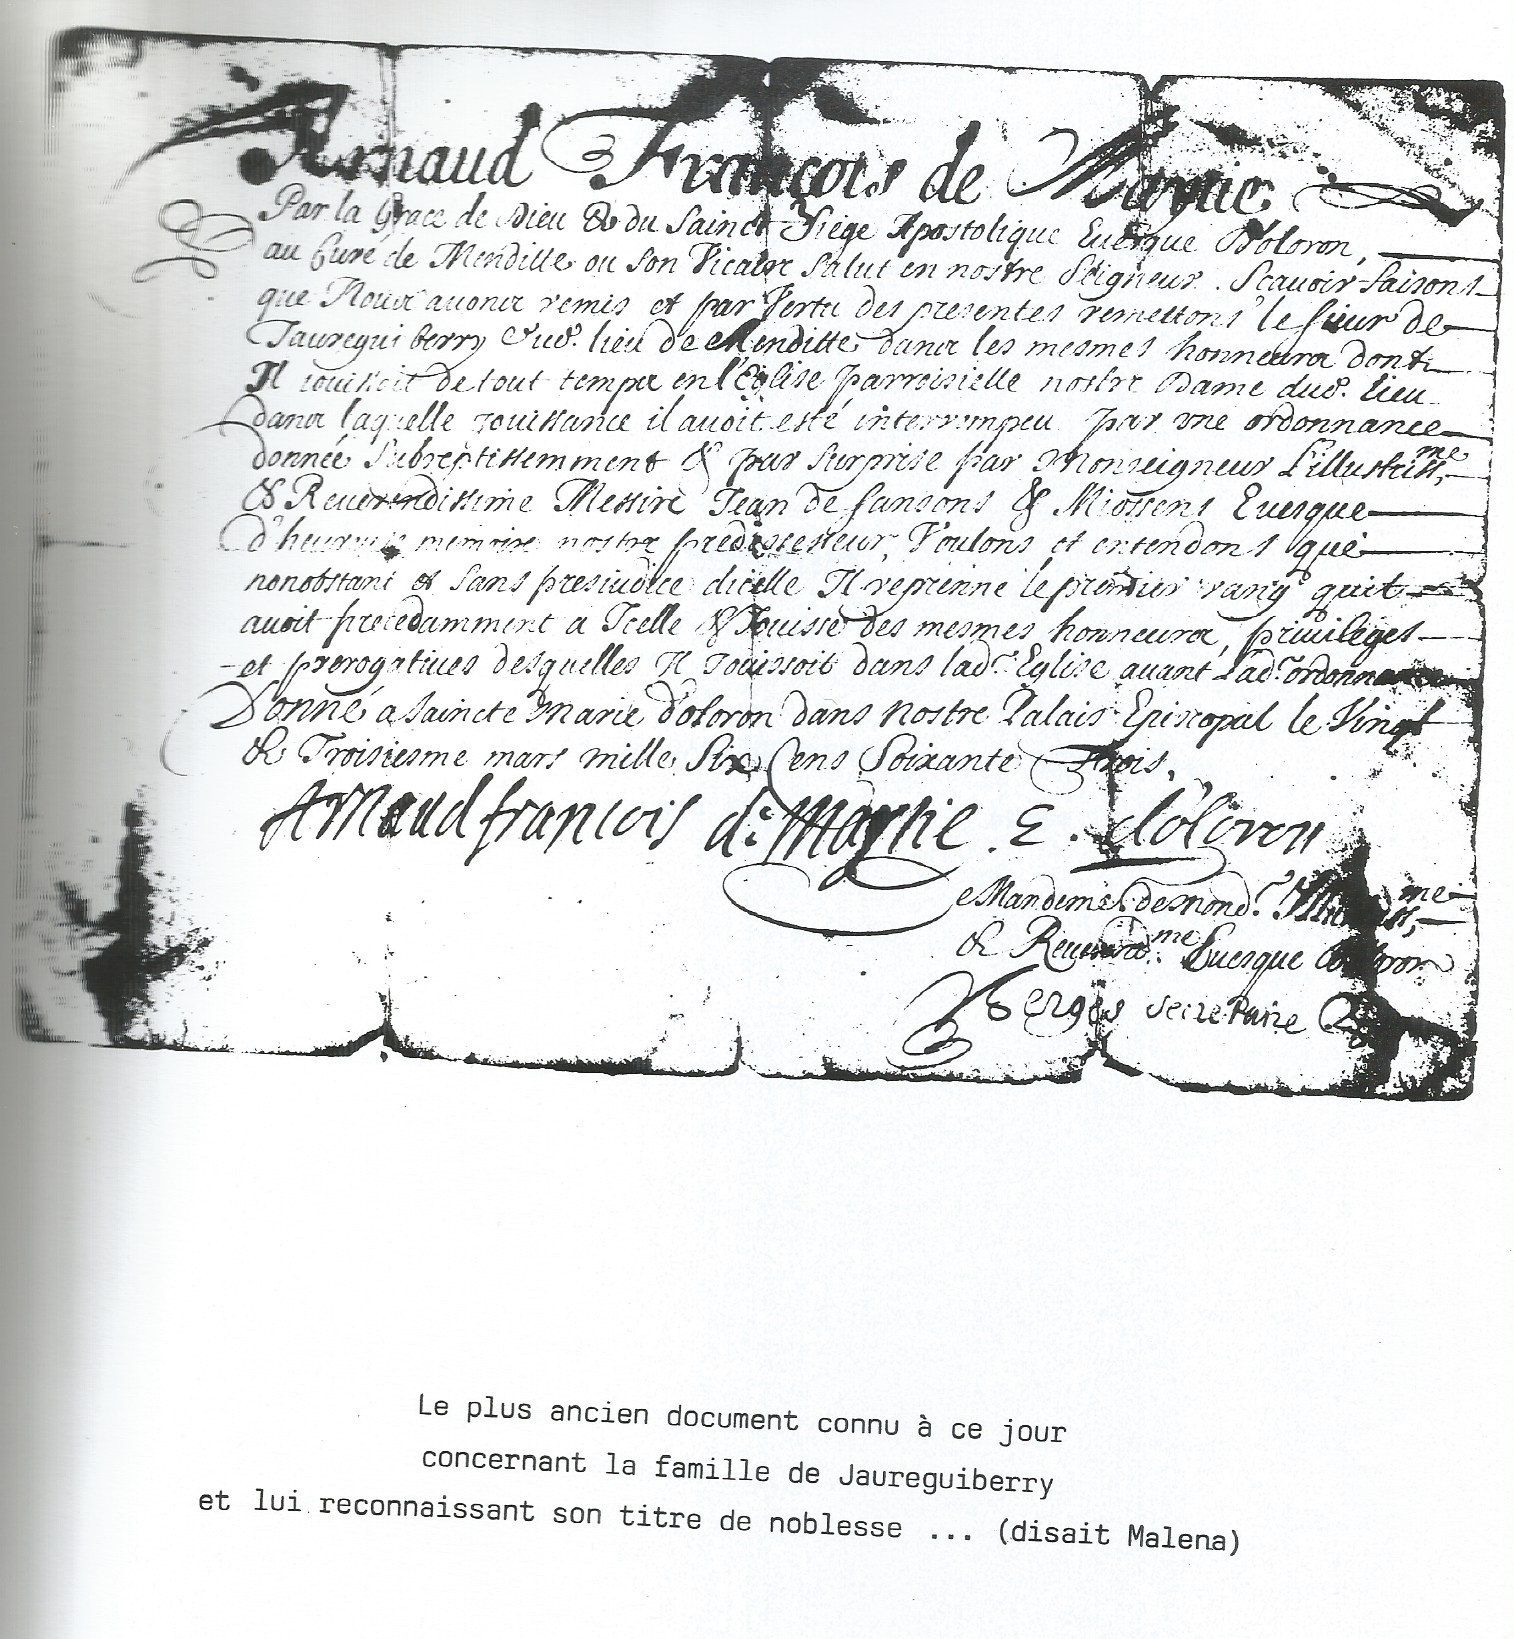 Arnaud François de Maytie
Par la Grace de Dieu & du Sainct Siége Apostolique Euesque D'oloron,
au Curé de Menditte ou son Vicaire Salut en nostre Seigneur. Scauoir faisons
que Nous auons remis et par Vertu des presentes remettons le sieur de
Jaureguiberry dud. lieu de Menditte dans les mesmes honneurs dont
Il iouissoit de tout temps en l'Eglise parroissielle nostre Dame dud. lieu
dans laquelle iouissance il auoit esté interrompeu par vne ordonnance
donnée Subreptissemment & par surprise par Monseigneur L'illustriss.me
& Reuerendissime Messire Jean de Sansons & Miossens Euesque
d'heureuse memoire nostre predecesseur, Voulons et entendons que
nonobstant et sans presiudice dicelle Il reprenne le premier rang quil
auoit precedamment a Icelle & Iouisse des mesmes honneurs, priuileges
et prerogatiues desquelles Il Iouissoit dans lad. Eglise auant Lad. ordonnance
Donné a Saincte Marie d'oloron dans nostre Palais Episcopal le Vingt
& Troisiesme mars mille Six Cens Soixante Trois.
Arnaud francois de Maytie . E . d'oloron
de Mond.
& Reuerend.me Euesque d'oloron
Berges secretaire
Le plus ancien document connu à ce jour
concernant la famille de Jaureguiberry
et lui reconnaissant son titre de noblesse ... (disait Malena)